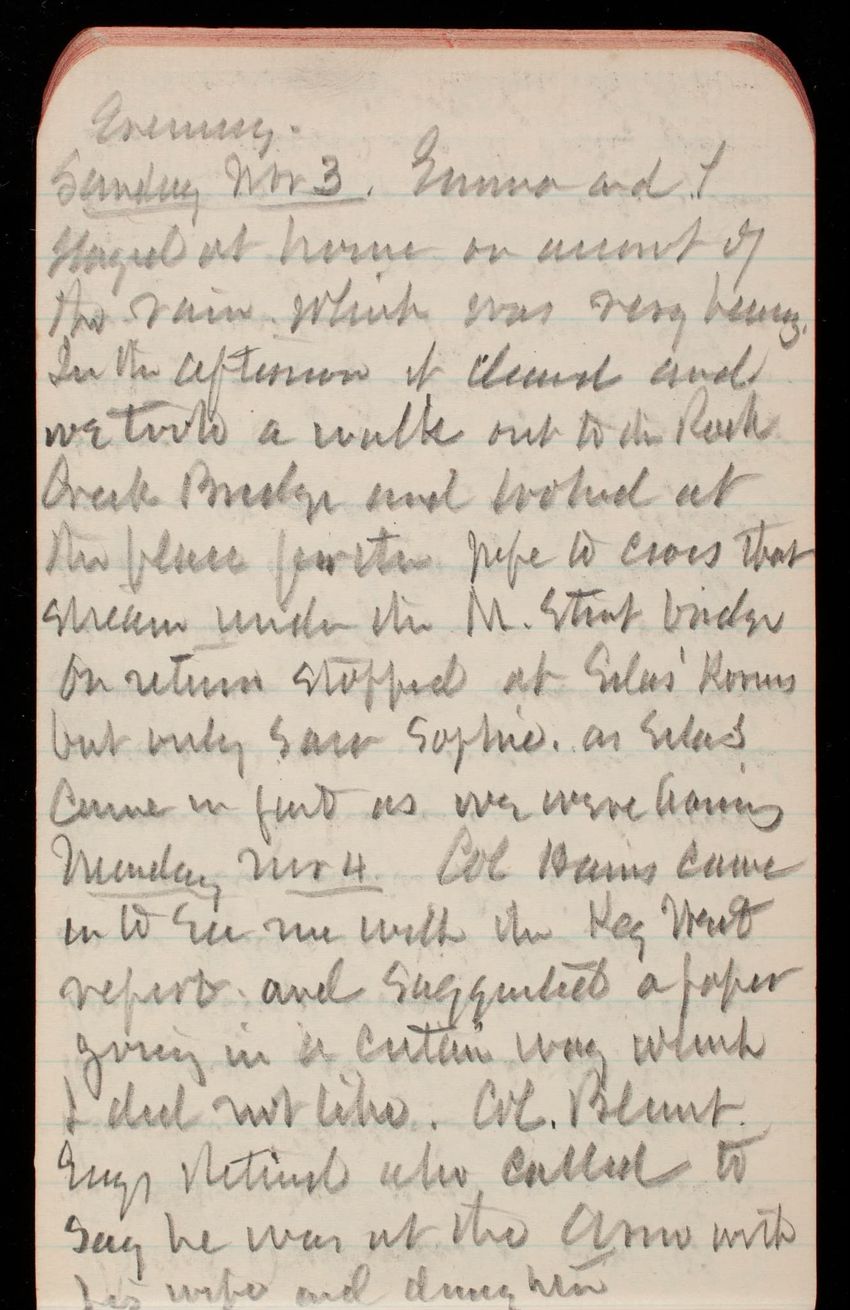 Evening.
Sunday Nov 3. Emma and I
stayed at home on account of
the rain which was very heavy.
In the afternoon it cleared and
we took a walk out to the Rock
Creek Bridge and looked at
the place for the pipe to cross that
stream under the M. Street bridge
On return stopped at Silas' Rooms
but only saw Sophie. as Silas
came in just as we were leaving
Monday Nov 4. Col Hains came
in to see me with the Key West
report and suggested a paper
going in a certain way which
I did not like. Col. Blunt.
Engr Retired also called to
say he was at the Arno with
his wife and daughter